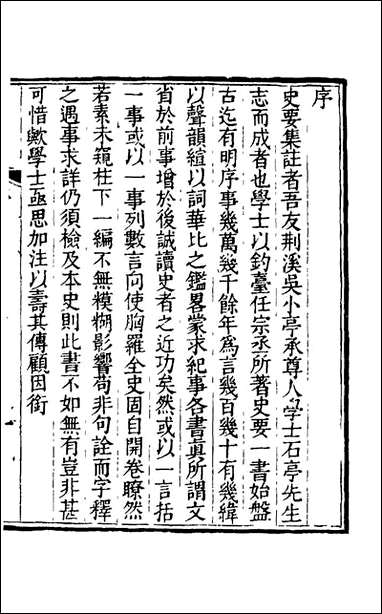 序
史要集註者吾友荆溪吳小亭承尊人学士石亭先生
志而成者也學士以釣臺任宗丞所著史要一書始盤
古迄有明序事幾萬幾千餘年爲言幾百幾十有幾緯
以聲韻繪以詞華比之鑑畧蒙求紀事各書眞所謂文
省於前事增於後誠讀史者之近功矣然或以一言括
一事或以一事列數言向使胸羅全史固自開卷瞭然
若素未窺柱下一編不無模糊影響苟非句詮而字釋
之遇事求詳仍須檢及本史則此書不如無有豈非甚
可惜歟學士亟思加注以壽其傳顧因銜